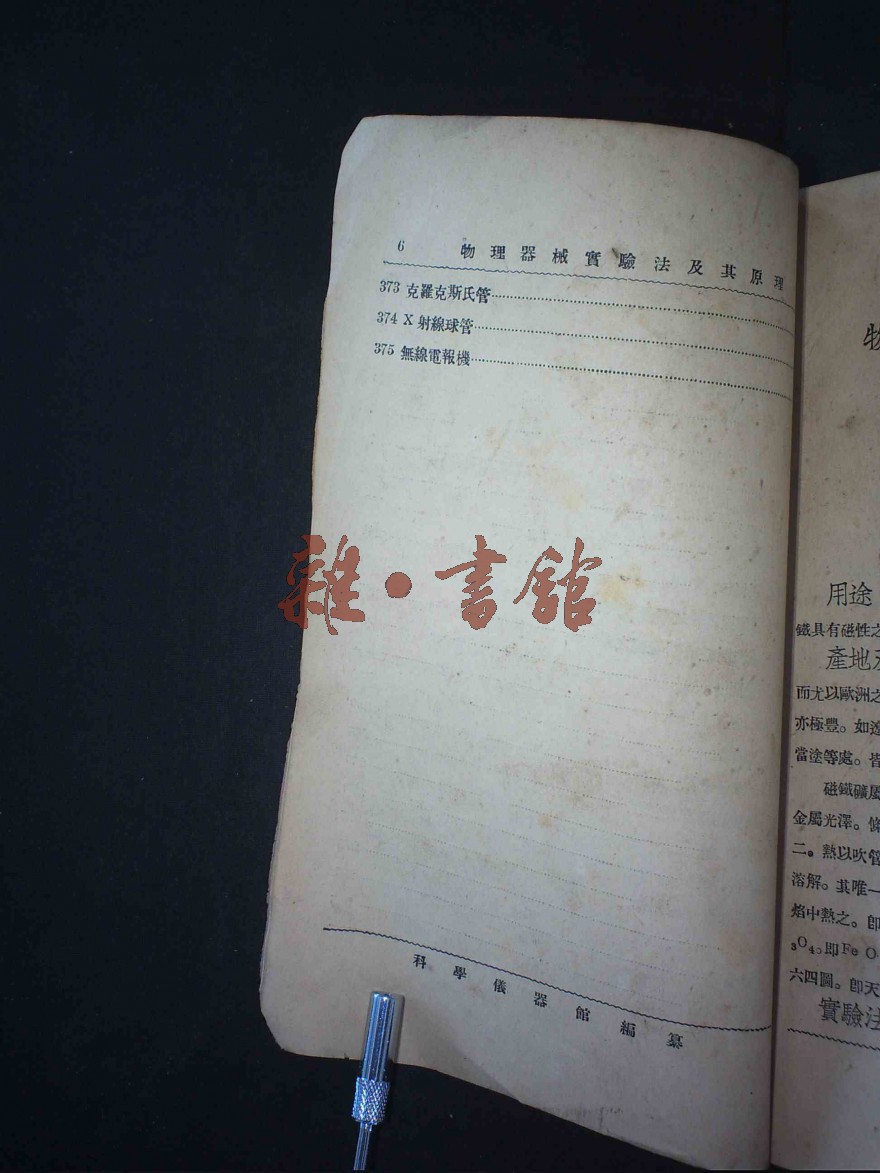 6 物理器械實驗法及其原理
373 克羅克斯氏管
374 X 射線球管
375 無線電報機
雜·書館
科學儀器館編纂
物
用途
鐵具有磁性之
產地及
而尤以歐洲之
亦極豐。如遼
當塗等處。皆
磁鐵礦屬
金屬光澤。條
二。熱以吹管
溶解。其唯一
焰中熱之。卽
₃O₄。卽Fe O
六四圖。卽天
實驗法